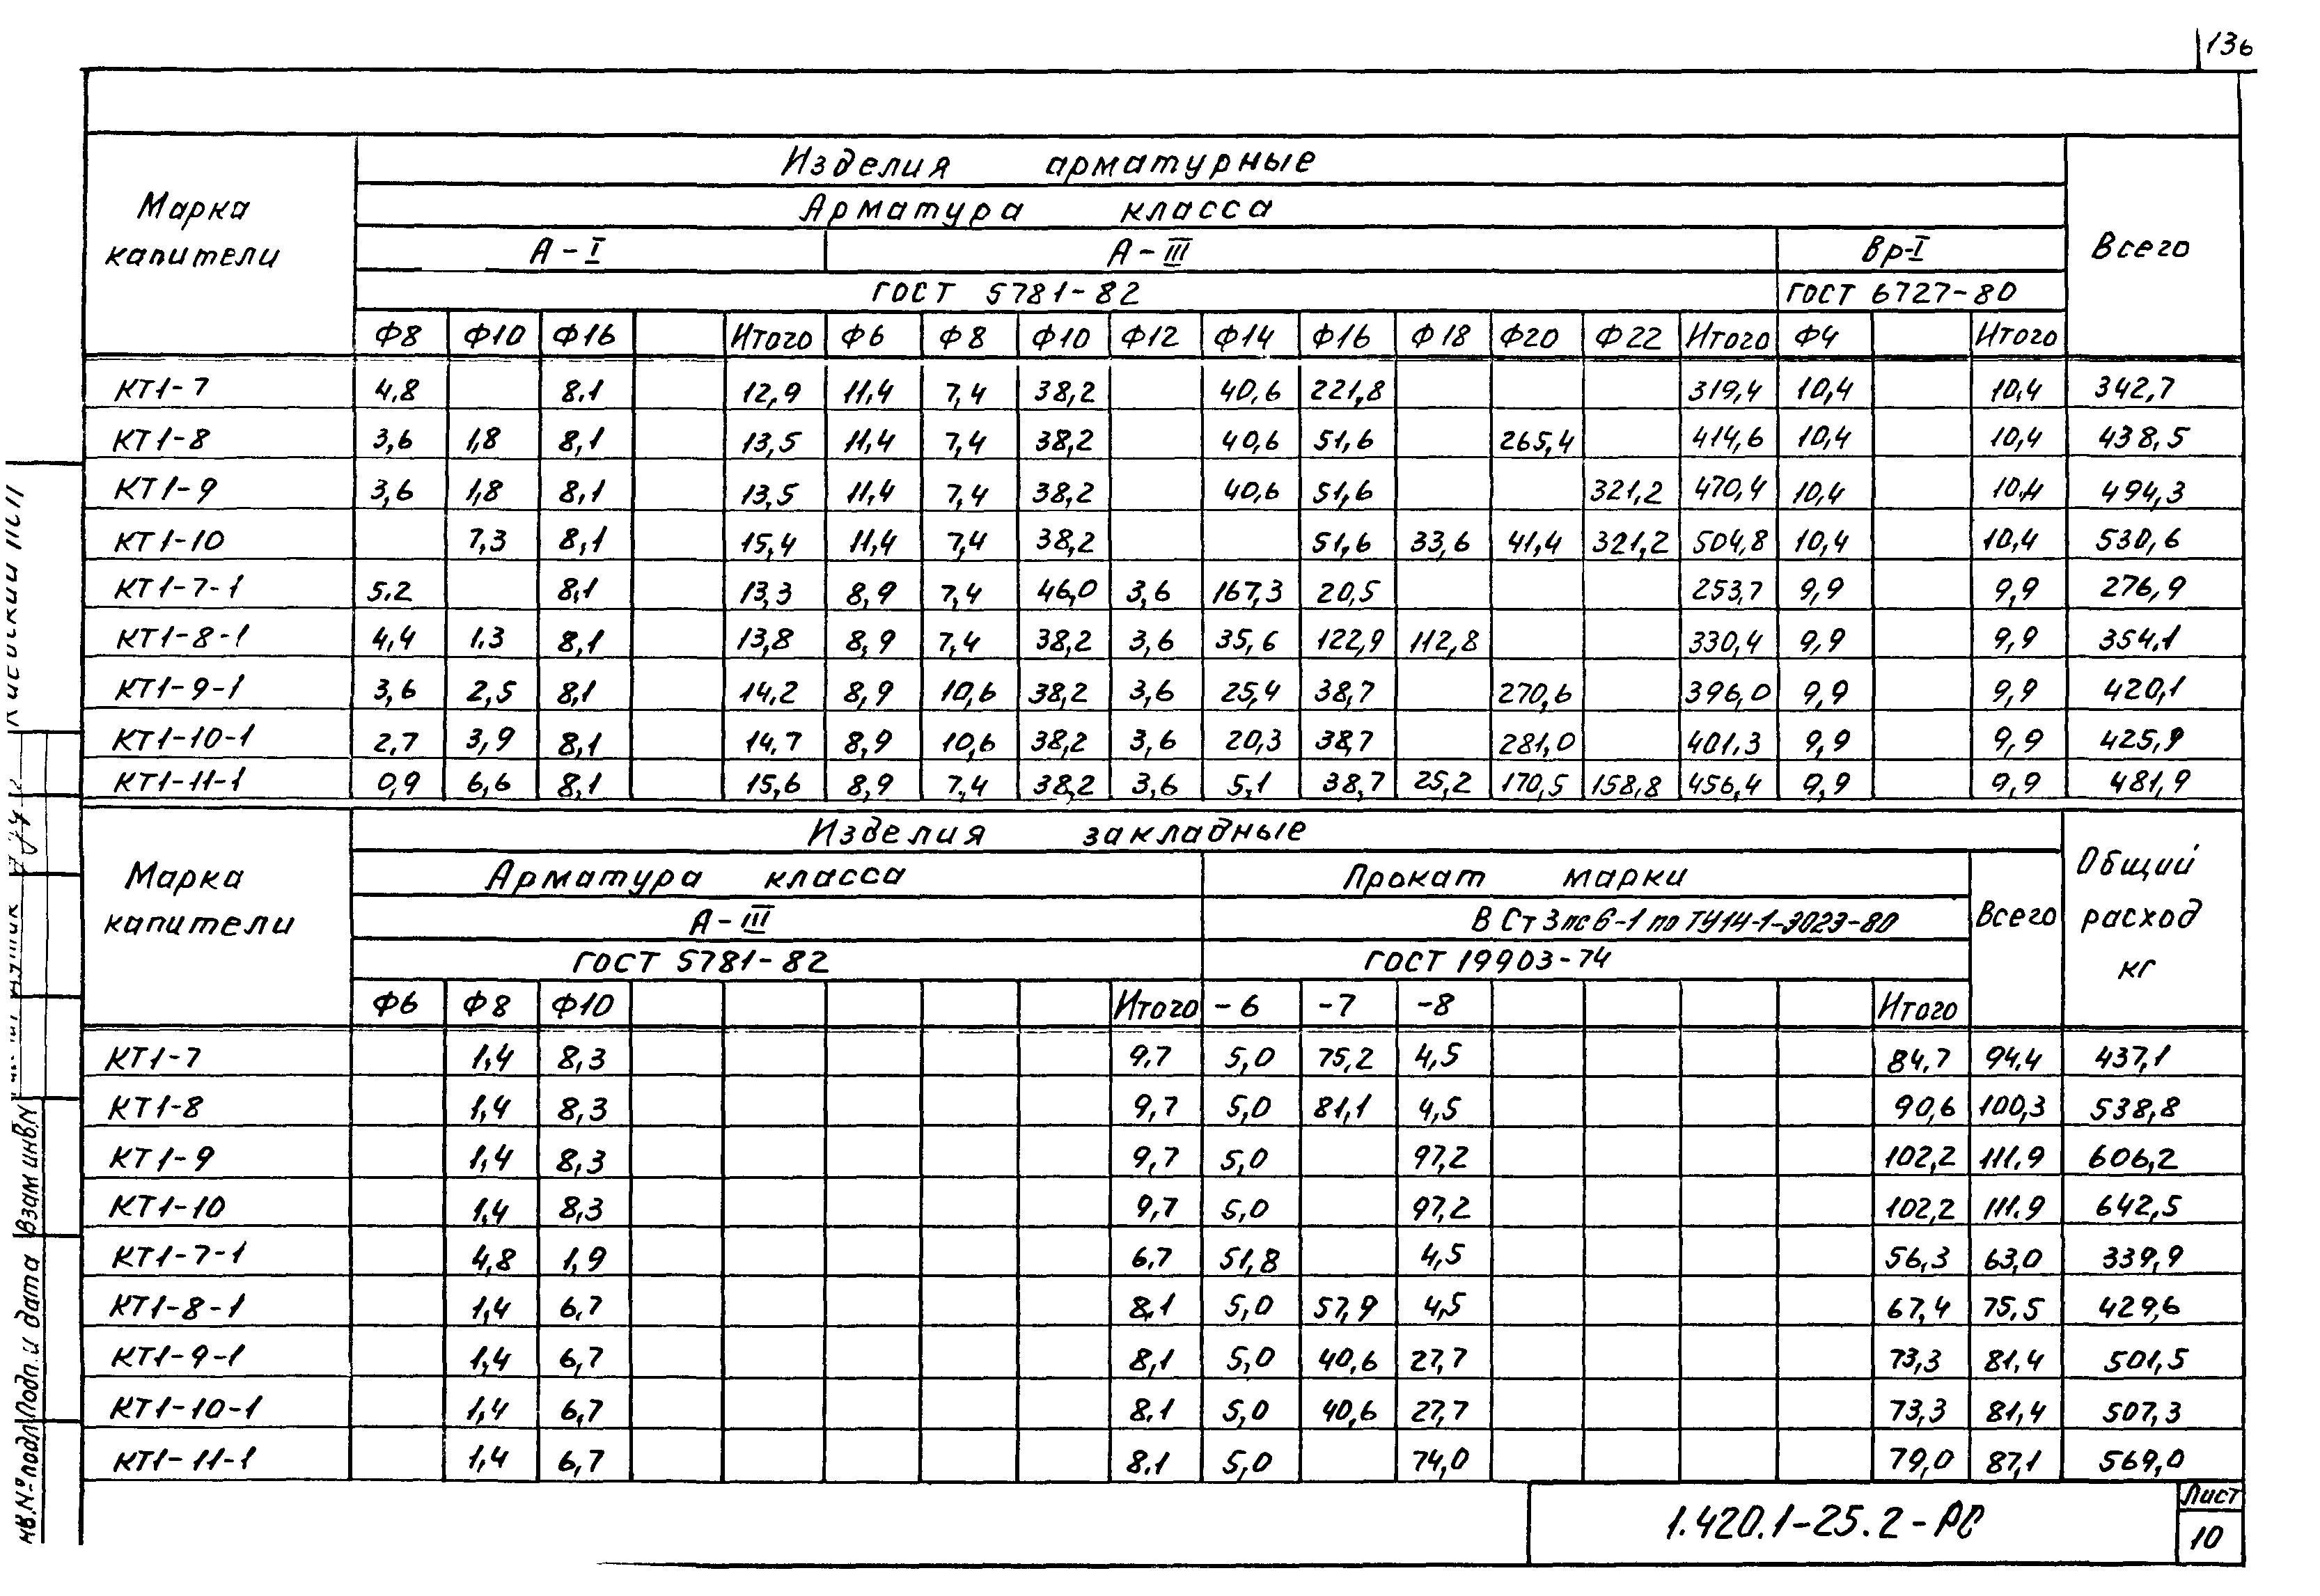 136
Изделия арматурные
Марка капители
Арматура класса
Всего
А-I А-III Вр-I
ГОСТ 5781-82 ГОСТ 6727-80
Ф8 Ф10 Ф16 Итого Ф6 Ф8 Ф10 Ф12 Ф14 Ф16 Ф18 Ф20 Ф22 Итого Ф4 Итого
КТ1-7 4,8 8.1 12,9 11,4 7,4 38,2 40,6 221,8 319,4 10,4 10,4 342,7
КТ1-8 3,6 1,8 8,1 13,5 11,4 7,4 38,2 40,6 51,6 265,4 414,6 10,4 10,4 438,5
КТ1-9 3,6 1,8 8,1 13,5 11,4 7,4 38,2 40,6 51,6 321,2 470,4 10,4 10,4 494,3
КТ1-10 7,3 8,1 15,4 11,4 7,4 38,2 51,6 33,6 41,4 321,2 504,8 10,4 10,4 530,6
КТ1-7-1 5.2 8,1 13,3 8,9 7,4 46,0 3,6 167,3 20,5 253,7 9,9 9,9 276,9
КТ1-8-1 4,4 1.3 8,1 13,8 8,9 7,4 38,2 3,6 35,6 122,9 112,8 330,4 9,9 9,9 354,1
КТ1-9-1 3,6 2,5 8,1 14,2 8,9 10,6 38,2 3,6 25,4 38,7 270,6 396,0 9,9 9,9 420,1
КТ1-10-1 2,7 3,9 8,1 14.7 8,9 10,6 38,2 3,6 20,3 38,7 281,0 401.3 9,9 9,9 425,9
КТ1-11-1 0,9 6,6 8,1 15,6 8,9 7,4 38,2 3,6 5,1 38,7 25,2 170,5 158,8 456,4 9,9 9,9 481,9
Изделия закладные
Марка капители
Арматура класса Прокат марки
Всего
Общий расход кг
А-III В Ст 3 пс 6-1 по ТУ14-1-3023-80
ГОСТ 5781-82 ГОСТ 19903-74
Ф6 Ф8 Ф10 Итого -6 -7 -8 Итого
КТ1-7 1,4 8,3 9,7 5,0 75,2 4,5 84,7 94,4 437,1
КТ1-8 1,4 8,3 9,7 5,0 81,1 4,5 90,6 100,3 538,8
КТ1-9 1,4 8,3 9,7 5,0 97,2 102,2 111.9 606,2
КТ1-10 1,4 8,3 9,7 5,0 97,2 102,2 111.9 642,5
КТ1-7-1 4,8 1,9 6,7 51,8 4,5 56,3 63,0 339,9
КТ1-8-1 1,4 6,7 8,1 5,0 57,9 4,5 67,4 75,5 429,6
КТ1-9-1 1,4 6,7 8,1 5,0 40,6 27,7 73,3 81,4 501,5
КТ1-10-1 1,4 6,7 8.1 5,0 40,6 27,7 73,3 81,4 507,3
КТ1-11-1 1,4 6,7 8.1 5,0 74,0 79,0 87,1 569,0
1.420.1-25.2-РС
Лист
10
Взам инв N
Подп. и дата